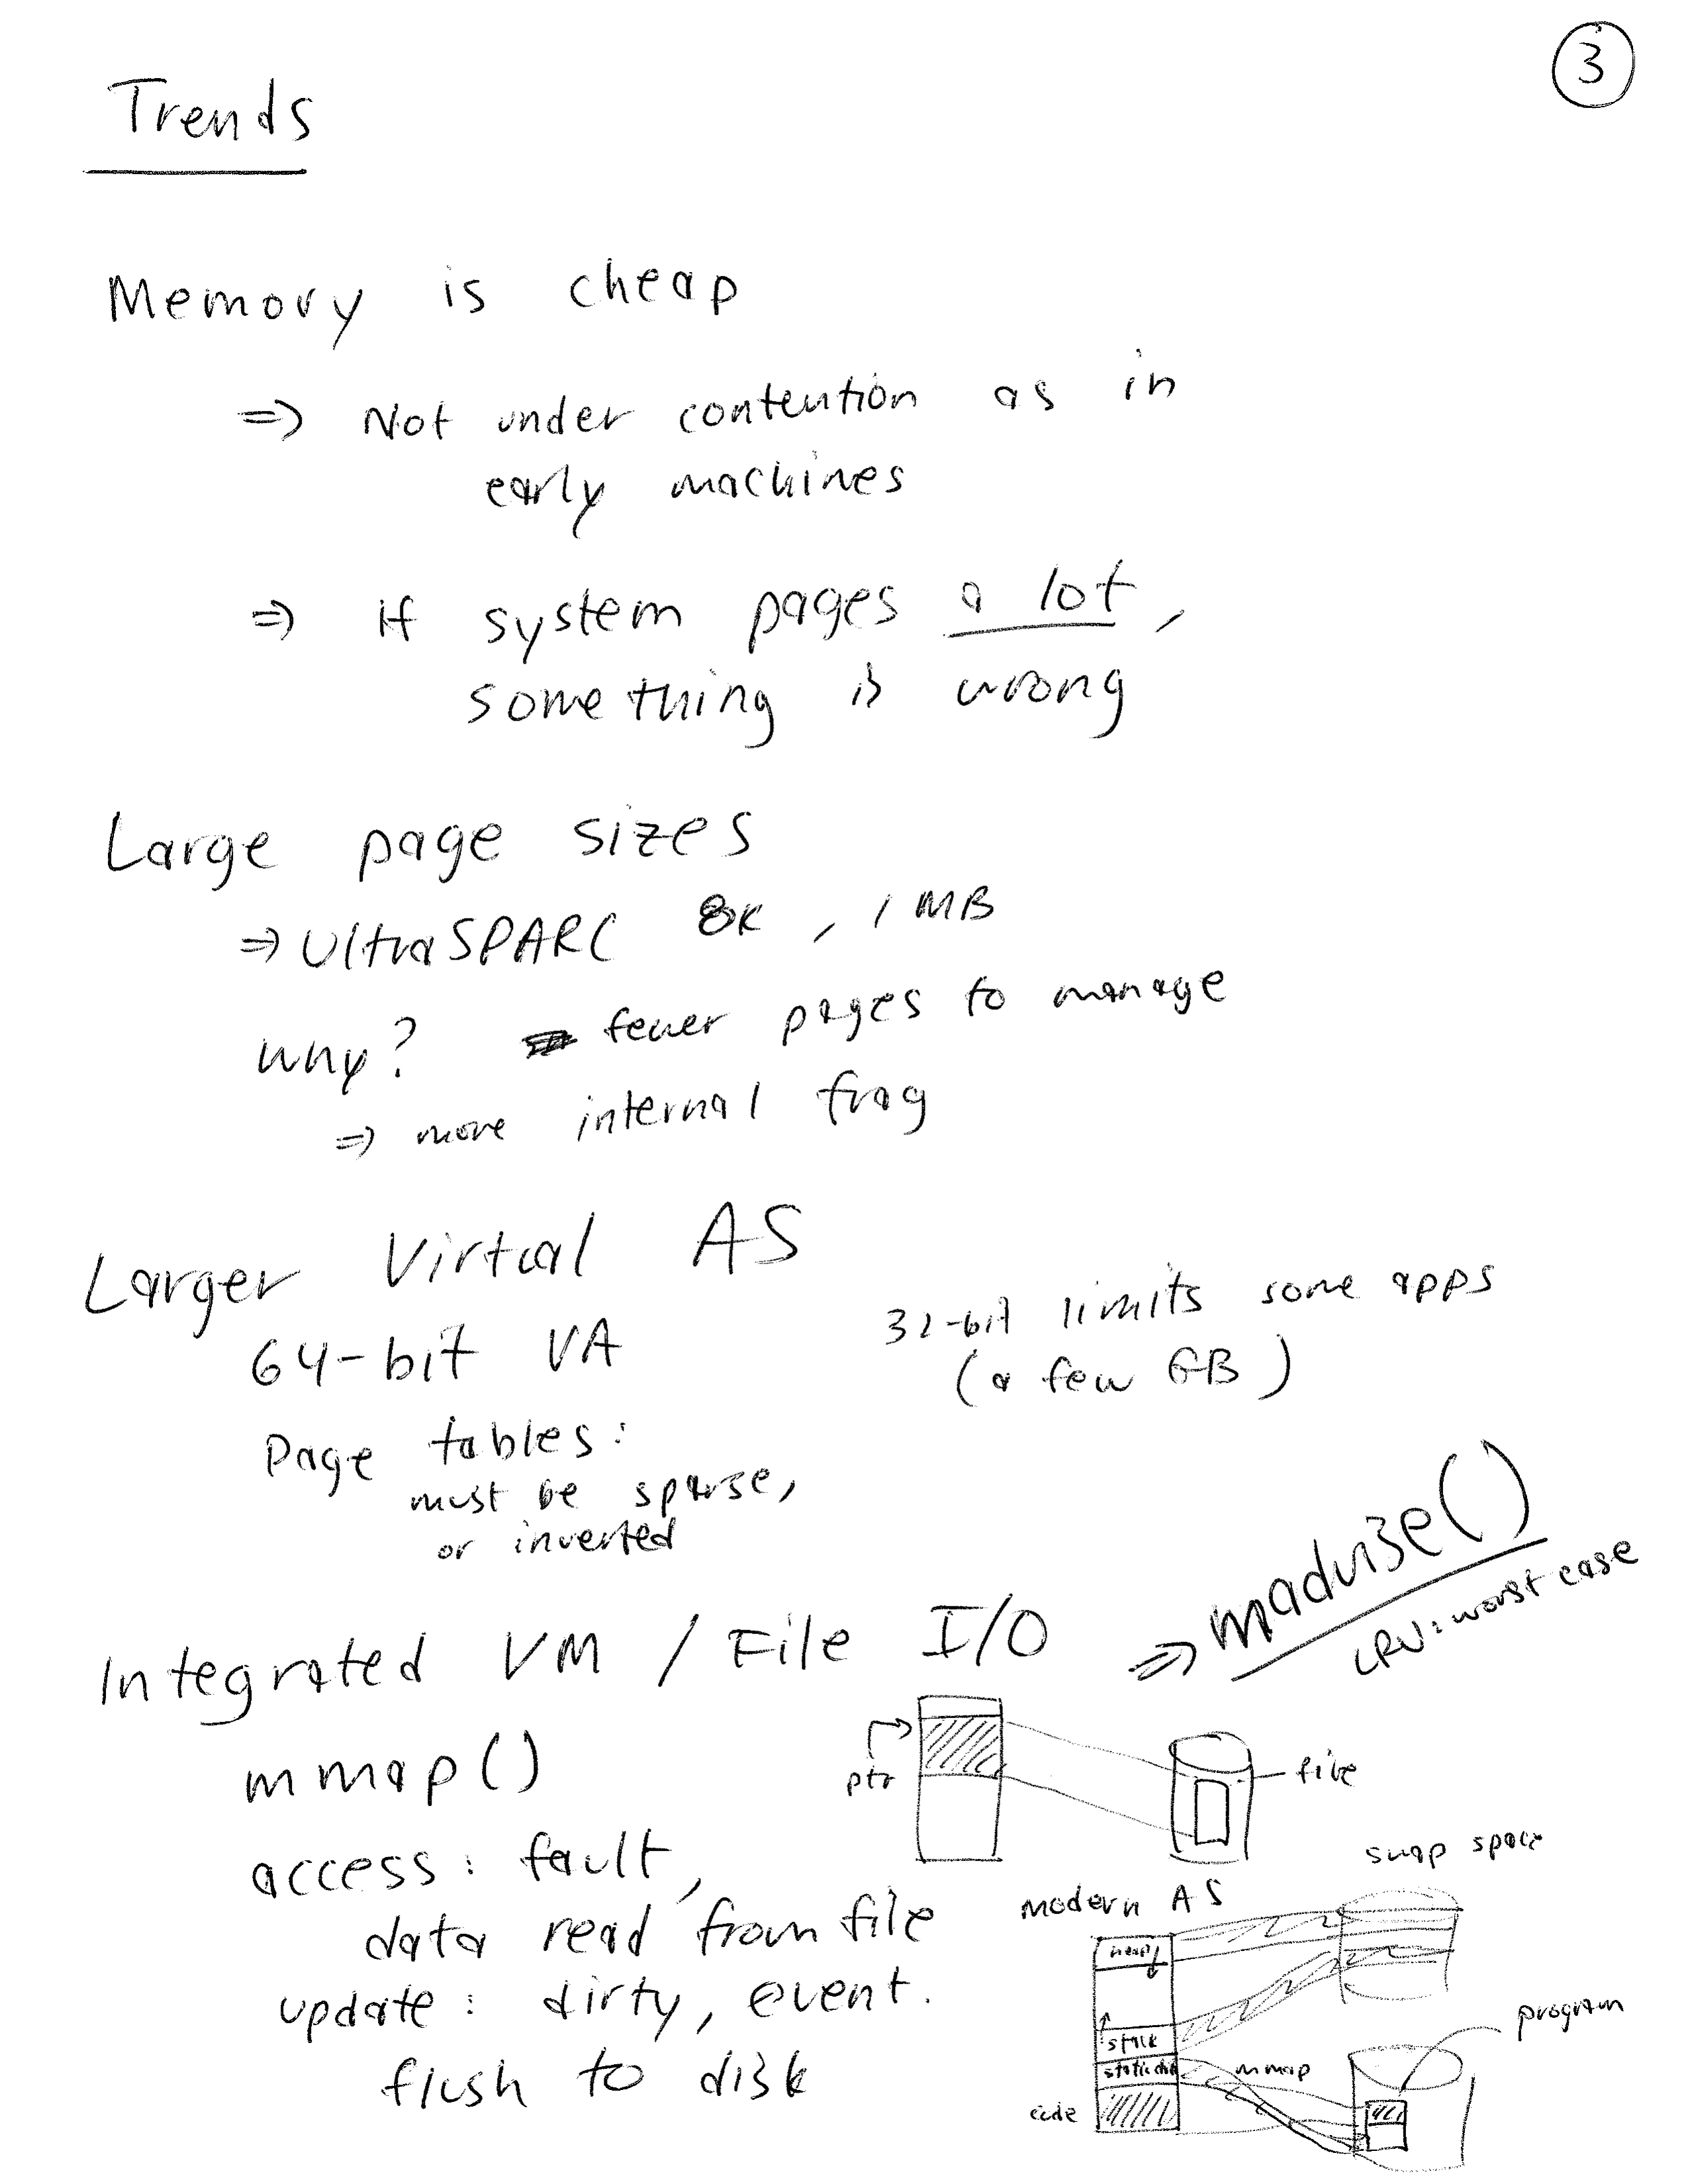 3
Trends
Memory is cheap
=> Not under contention as in
early machines
=> if system pages a lot,
something is wrong
Large page sizes
=> UltraSPARC 8K, 1 MB
why? fewer pages to manage
=> more internal frag
Larger Virtual AS
64-bit VA
32-bit limits some apps
(a few GB)
Page tables:
must be sparse,
or inverted
Integrated VM / File I/O => madvise()
LRU: worst case
mmap()
ptr
file
access: fault,
data read from file
update: dirty, event.
flush to disk
swap space
modern AS
heap
stack
static data
code
mmap
program